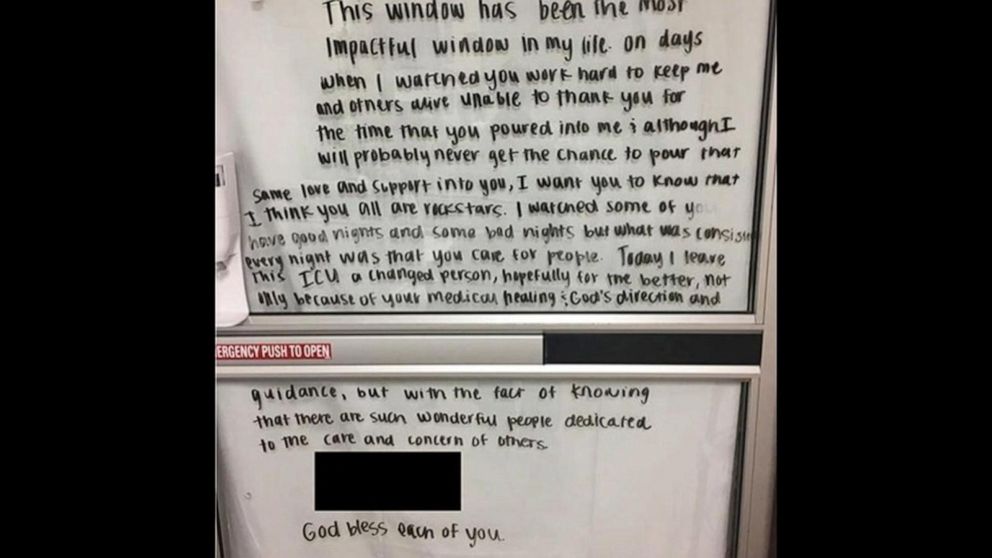 This window has been the most
impactful window in my life. on days
when I watched you work hard to keep me
and others alive unable to thank you for
the time that you poured into me & although I
will probably never get the chance to pour that
same love and support into you, I want you to know that
I think you all are rockstars. I watched some of you
have good nights and some bad nights but what was consist
every night was that you care for people. Today I leave
This ICU a changed person, hopefully for the better, not
only because of your medical healing & God's direction and
ERGENCY PUSH TO OPEN
guidance, but with the fact of knowing
that there are such wonderful people dedicated
to the care and concern of others.
God bless each of you.